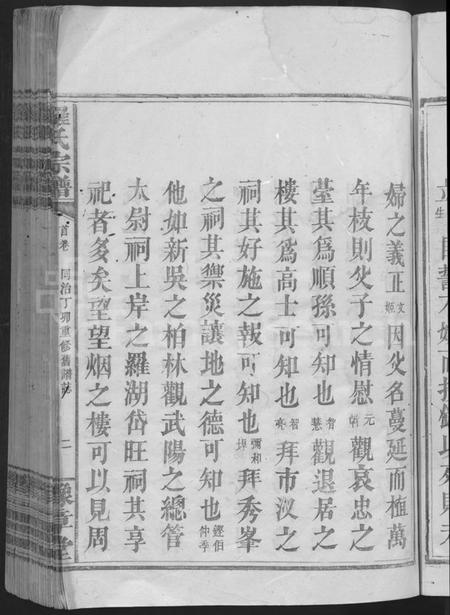 婦之義正文姬因父名蔓延而植萬
年枝則父子之情慰元幹觀哀忠之
臺其爲順孫可知也智慧觀退居之
樓其爲高士可知也智亮拜市汊之
祠其好施之報可知也彌和拜秀峯
之祠其禦災讓地之德可知也鏗伯仲季
他如新吳之柏林觀武陽之總管
太尉祠上岸之羅湖岱旺祠其享
祀者多矣望望烟之樓可以見周
羅氏宗譜
首卷 同治丁卯重修舊譜誌 二
豫章堂